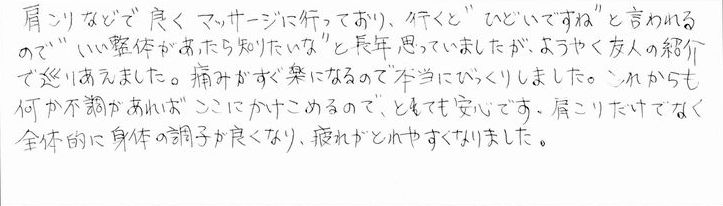 肩こりなどで良くマッサージに行っており、行くと"ひどいですね"と言われる
ので"いい整体があったら知りたいな"と長年思っていましたが、ようやく友人の紹介
で巡りあえました。痛みがすぐ楽になるので本当にびっくりしました。これからも
何か不調があればここにかけこめるので、とても安心です。肩こりだけでなく
全体的に身体の調子が良くなり、疲れがとれやすくなりました。